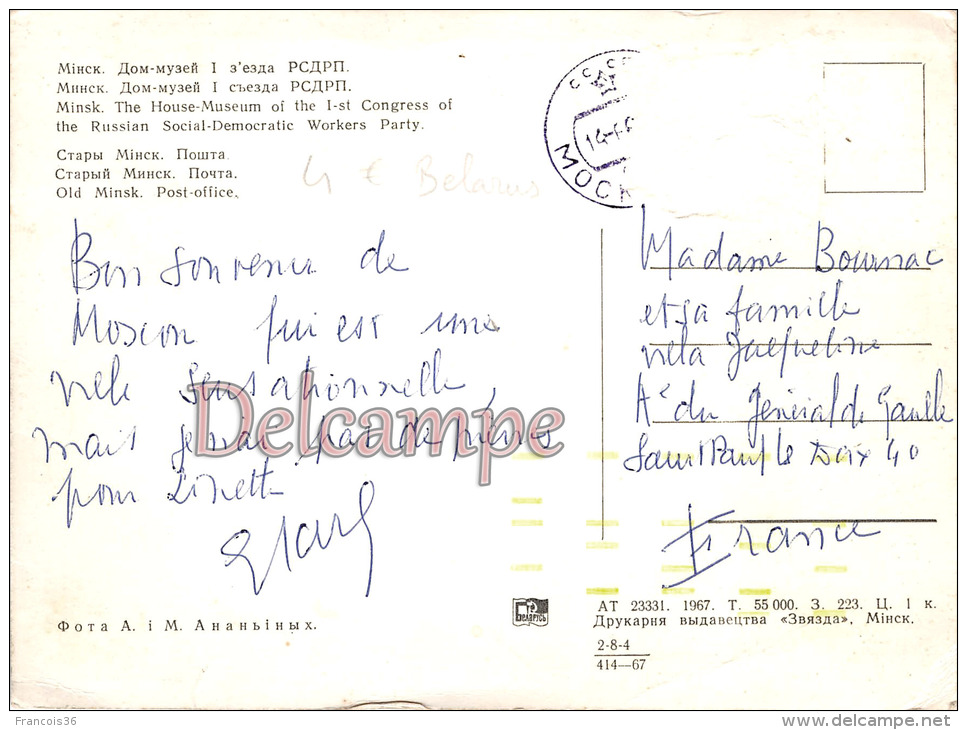 Мінск. Дом-музей I з'езда РСДРП.
Минск. Дом-музей I съезда РСДРП.
Minsk. The House-Museum of the I-st Congress of
the Russian Social-Democratic Workers Party.
Стары Мінск. Пошта.
Старый Минск. Почта.
Old Minsk. Post-office.
4 € Belarus
СССР
14-
МОСК
Bon souvenir de
Moscou qui est une
ville sensationnelle,
mais je n'ai pas de
pour Linette
Madame Bournac
et sa famille
villa Jacqueline
Ave du Général de Gaulle
Saint Paul les Dax 40
France
Delcampe
Фота А. і М. Ананьіных.
БЕЛАРУСЬ
АТ 23331. 1967. Т. 55 000. З. 223. Ц. 1 к.
Друкарня выдавецтва «Звязда», Мінск.
2-8-4
414—67
Francois36
www.delcampe.net